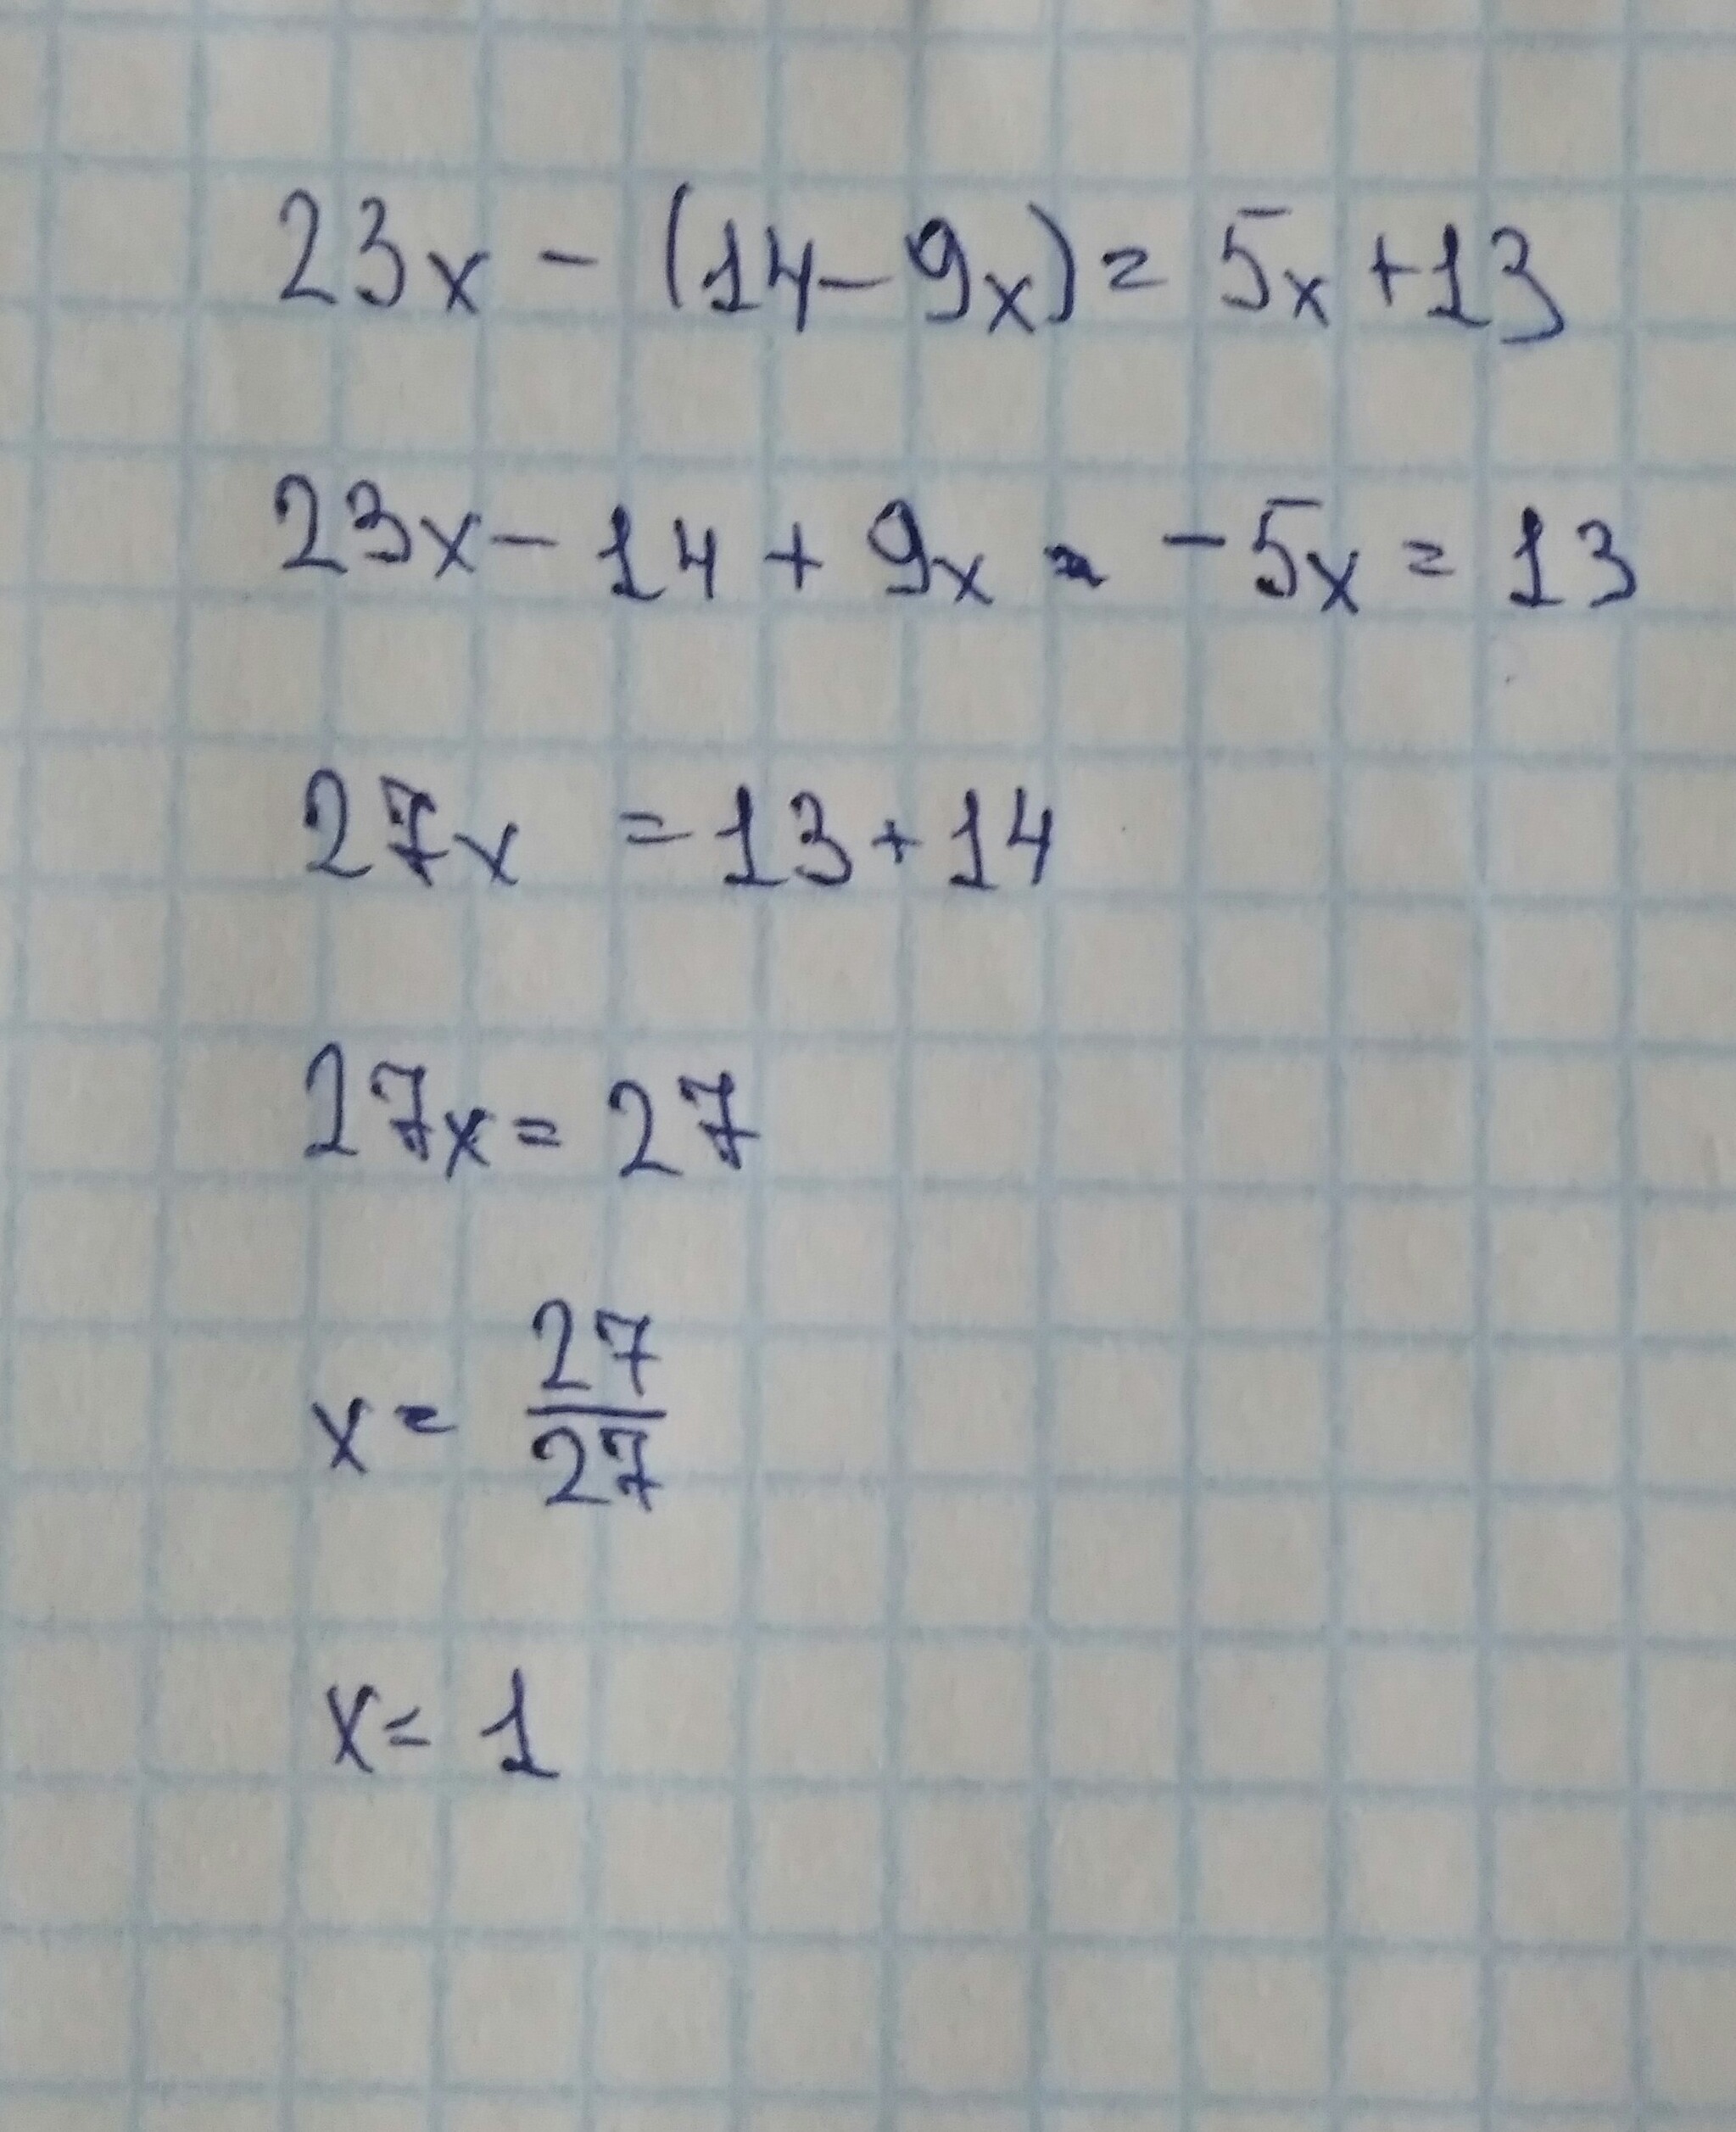 23x - (14 - 9x) = 5x + 13
23x - 14 + 9x - 5x = 13
27x = 13 + 14
27x = 27
x = 27/27
x = 1